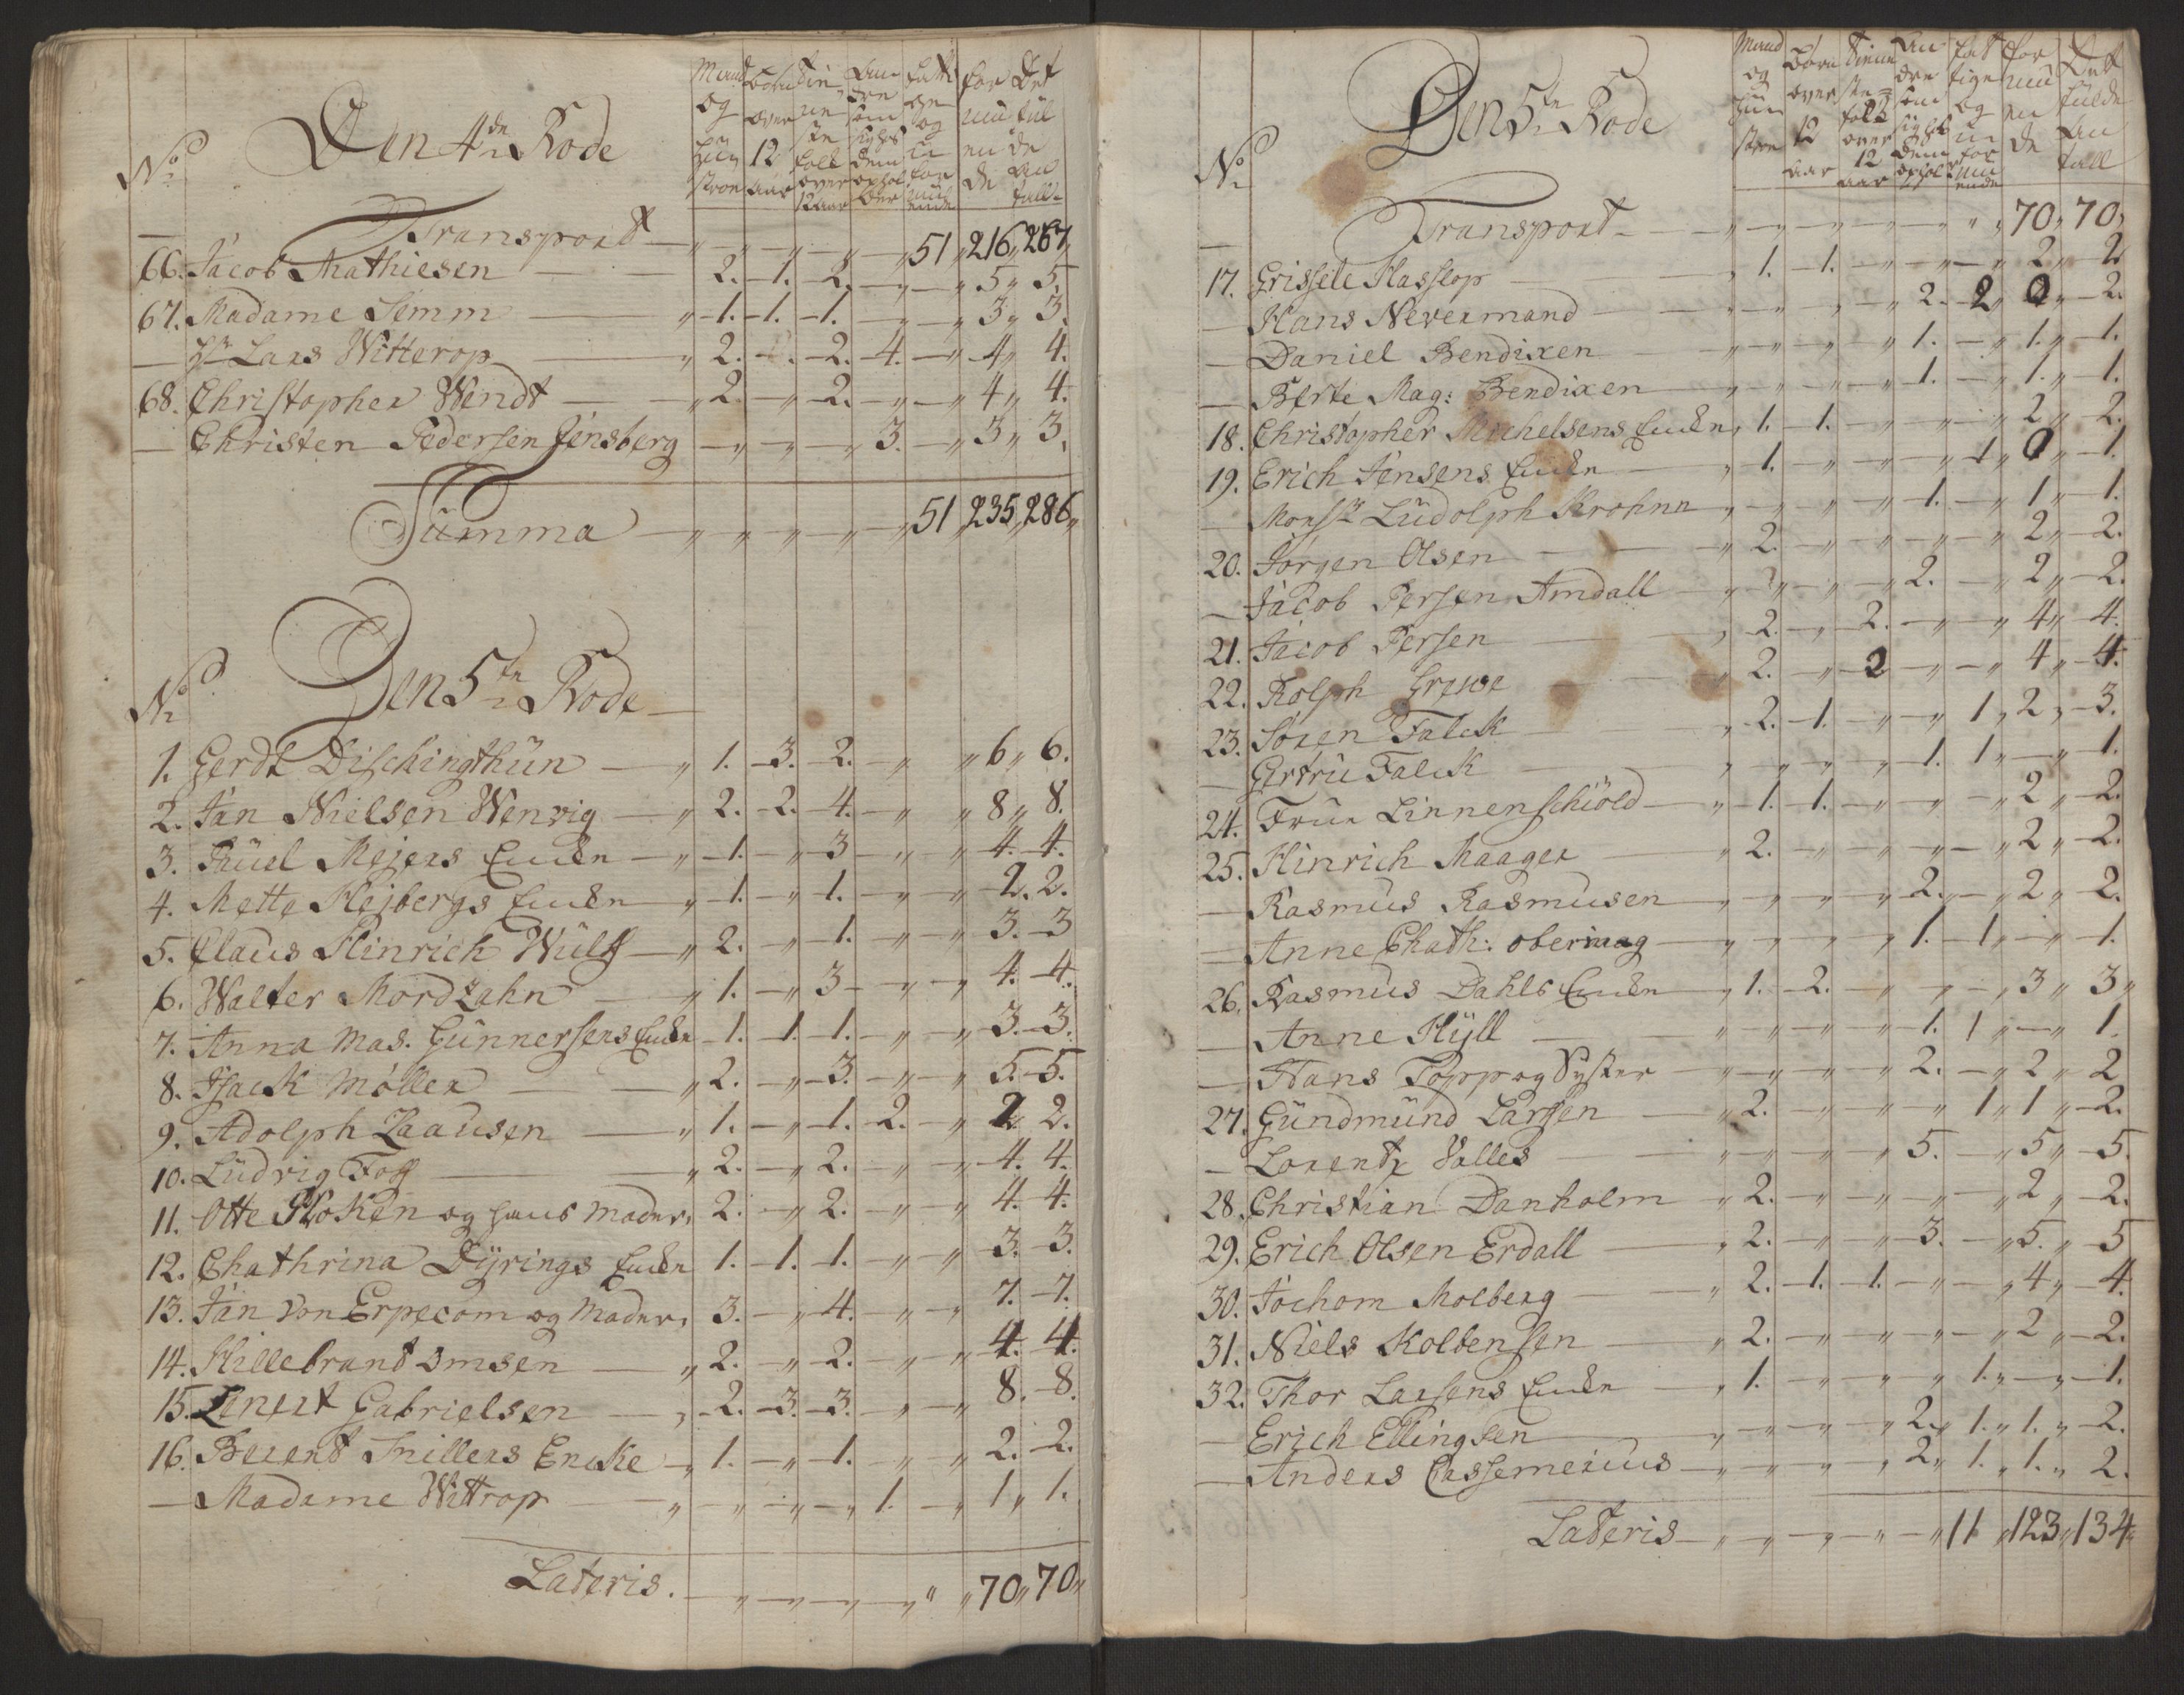 No
Den 4de Rode
Mand og Hustroe
Børn over 12 aar
Tieneste folk over 12 aar
Andre som sig hos dem opholder
fattige og uformuende
formuende
Det fulde Antall
Transport — „ — „ — „ — „ — „ 51 „ 216 „ 267 „
66. Jacob Mathiesen — 2. — 1. — 2. — „ — „ 5 „ 5.
67. Madame Semm — „ — 1. — 1. — 1. — „ — „ 3 „ 3.
— Hr Lars Witterop — „ 2. — . — 2. 4. — „ 4 „ 4.
68. Christopher Wendt — „ 2. — „ 2. — „ — „ 4 „ 4.
— Christen Pedersen Jensberg — „ — „ — „ 3. — „ 3 „ 3.
Summa — „ — „ — „ — „ — „ 51 „ 235 „ 286 „
No
Den 5te Rode
1. Gerdt Dischingthün — „ 1. — 3. — 2. — „ „ 6 „ 6.
2. Jan Nielsen Wenvig — „ 2. — 2. — 4. — „ „ 8 „ 8.
3. Truel Mejers Encke — „ — 1. — „ 3 — „ — „ 4. — 4.
4. Mette Hejbergs Encke — „ — 1. — „ 1. — „ — „ 2. 2.
5. Claus Hinrich Wulff — „ 2. — „ 1. — „ — „ 3. — 3
6. Walter Mordzahn — „ 1. — „ 3 — „ — „ 4. — 4.
7. Anna Mas. Gunnersens Encke — 1. — 1. — 1. — „ — „ 3. — 3.
8. Isack Møller — „ 2. — „ 3. — „ — „ 5. — 5.
9. Adolph Laausen — „ 1. — „ 1. — 2. — „ 2 2.
10. Ludvig Foss — „ 2. — „ 2. — „ — „ 4. 4.
11. Otte Ploken og hans Moder, 2. — „ 2. — „ — „ 4. — 4.
12. Chathrina Dyrings Encke 1. — 1. — 1. — „ — „ 3. — 3.
13. Jan von Erpecom og Moder, 3. — „ 4. — „ — „ 7. — 7.
14. Hillebrant Omsen — „ 2. — „ 2. — „ — „ 4. 4.
15. Lenert Gabrielsen — „ — 2. — 3. — 3. — „ — „ 8. — 8.
16. Berent Snillers Encke — „ 1. — „ 1. — „ „ 2. — 2.
— Madame Wittrop — „ — „ — „ — „ 1. — „ 1 „ 1.
Lateris. — „ — „ — „ — „ „ „ 70 „ 70 „
No
Den 5te Rode
Mand og Hustroe
Børn over 12 aar
Tieneste folk over 12 aar
Andre som sig hos dem ophol
fattige og uformuende
formuende
Det fulde Antall
Transport — „ — „ — „ — „ „ „ 70 „ 70 „
17. Grissele Hasslop — „ 1. — 1. — „ — „ — „ 2 „ — 2
— Hans Nevermand — „ — „ — „ — „ 2. — 2 „ 0 „ — 2.
— Daniel Bendixen — „ — „ — „ — „ 1. — „ 1. „ — 1.
— Berte Mag: Bendixen — „ — „ — „ — „ 1. — „ 1. „ — 1.
18. Christopher Michelsens Encke, 1. — 1. — „ — „ — „ 2 „ — 2.
19. Erich Jensens Encke — „ 1. — „ — „ — „ 1 „ 0 „ — 1.
— Monsr Ludolph Krohnn „ — „ — „ — „ 1. — „ 1 „ — 1.
20. Jørgen Olsen — „ 2. — „ — „ — „ — „ 2 „ — 2.
— Jacob Persen Amdall — „ — „ — „ — „ 2. — „ 2 „ — 2.
21. Jacob Persen — „ 2. — „ 2. — „ — „ 4 „ — 4.
22. Rolph Grewe — „ 2. — „ 2 — „ — „ 4 „ — 4.
23. Søren Falck — „ 2. — 1. — „ — „ 1 „ 2 „ — 3.
— Gertru Falck — „ — „ — „ — „ 1. 1 „ — „ — 1.
24. Frue Linnenschiold — „ — 1. — 1. — „ — „ — „ 2 „ — 2.
25. Hinrich Maager — „ 2. — „ — „ — „ — „ 2 „ — 2.
— Rasmus Rasmusen — „ — „ — „ — „ 2. — „ 2 „ — 2.
— Anne Chath: obermag — „ — „ — „ — „ 1. — 1 „ — „ — 1.
26. Rasmus Dahls Encke — „ 1. — 2. — „ — „ — „ 3 „ 3 „
— Anne Hyll — „ — „ — „ — „ 1. 1 „ — „ 1.
— Hans Topp og Syster — „ — „ — „ — „ 2. — „ 2 „ 2
27. Gundmund Larsen — „ 2. — „ — „ — „ 1 „ 1 „ — 2.
— Lorentz Valles — „ — „ — „ — „ 5. — „ 5 „ — 5.
28. Christian Danholm — „ 2. — „ — „ — „ — „ 2 „ — 2.
29. Erich Olsen Erdall — „ 2. — „ — „ 3. — „ 5. „ — 5
30. Jochom Molberg — „ 2. — 1. — 1. — „ — „ 4 „ — 4.
31. Niels Kolbensen — „ 2. — „ — „ — „ — „ 2 „ — 2.
32. Thor Larsens Encke — „ 1. — „ — „ — „ 1. „ — „ — 1.
— Erich Ellingsen — „ — „ — „ — „ 2. „ 1. „ 1. „ — 2.
— Anders Cassemerius — „ — „ — „ — „ 2. „ 1. „ 1. „ 2.
Lateris — „ — „ — „ — „ — „ 11 „ 123 „ 134 „